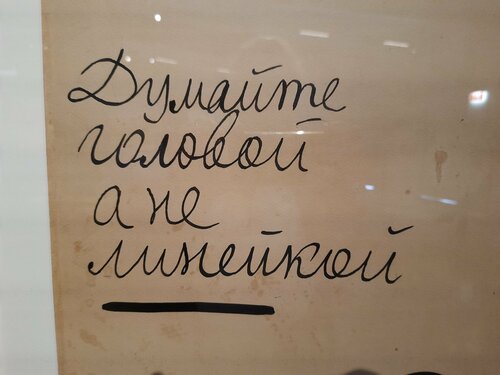 Думайте
головой
а не
линейкой